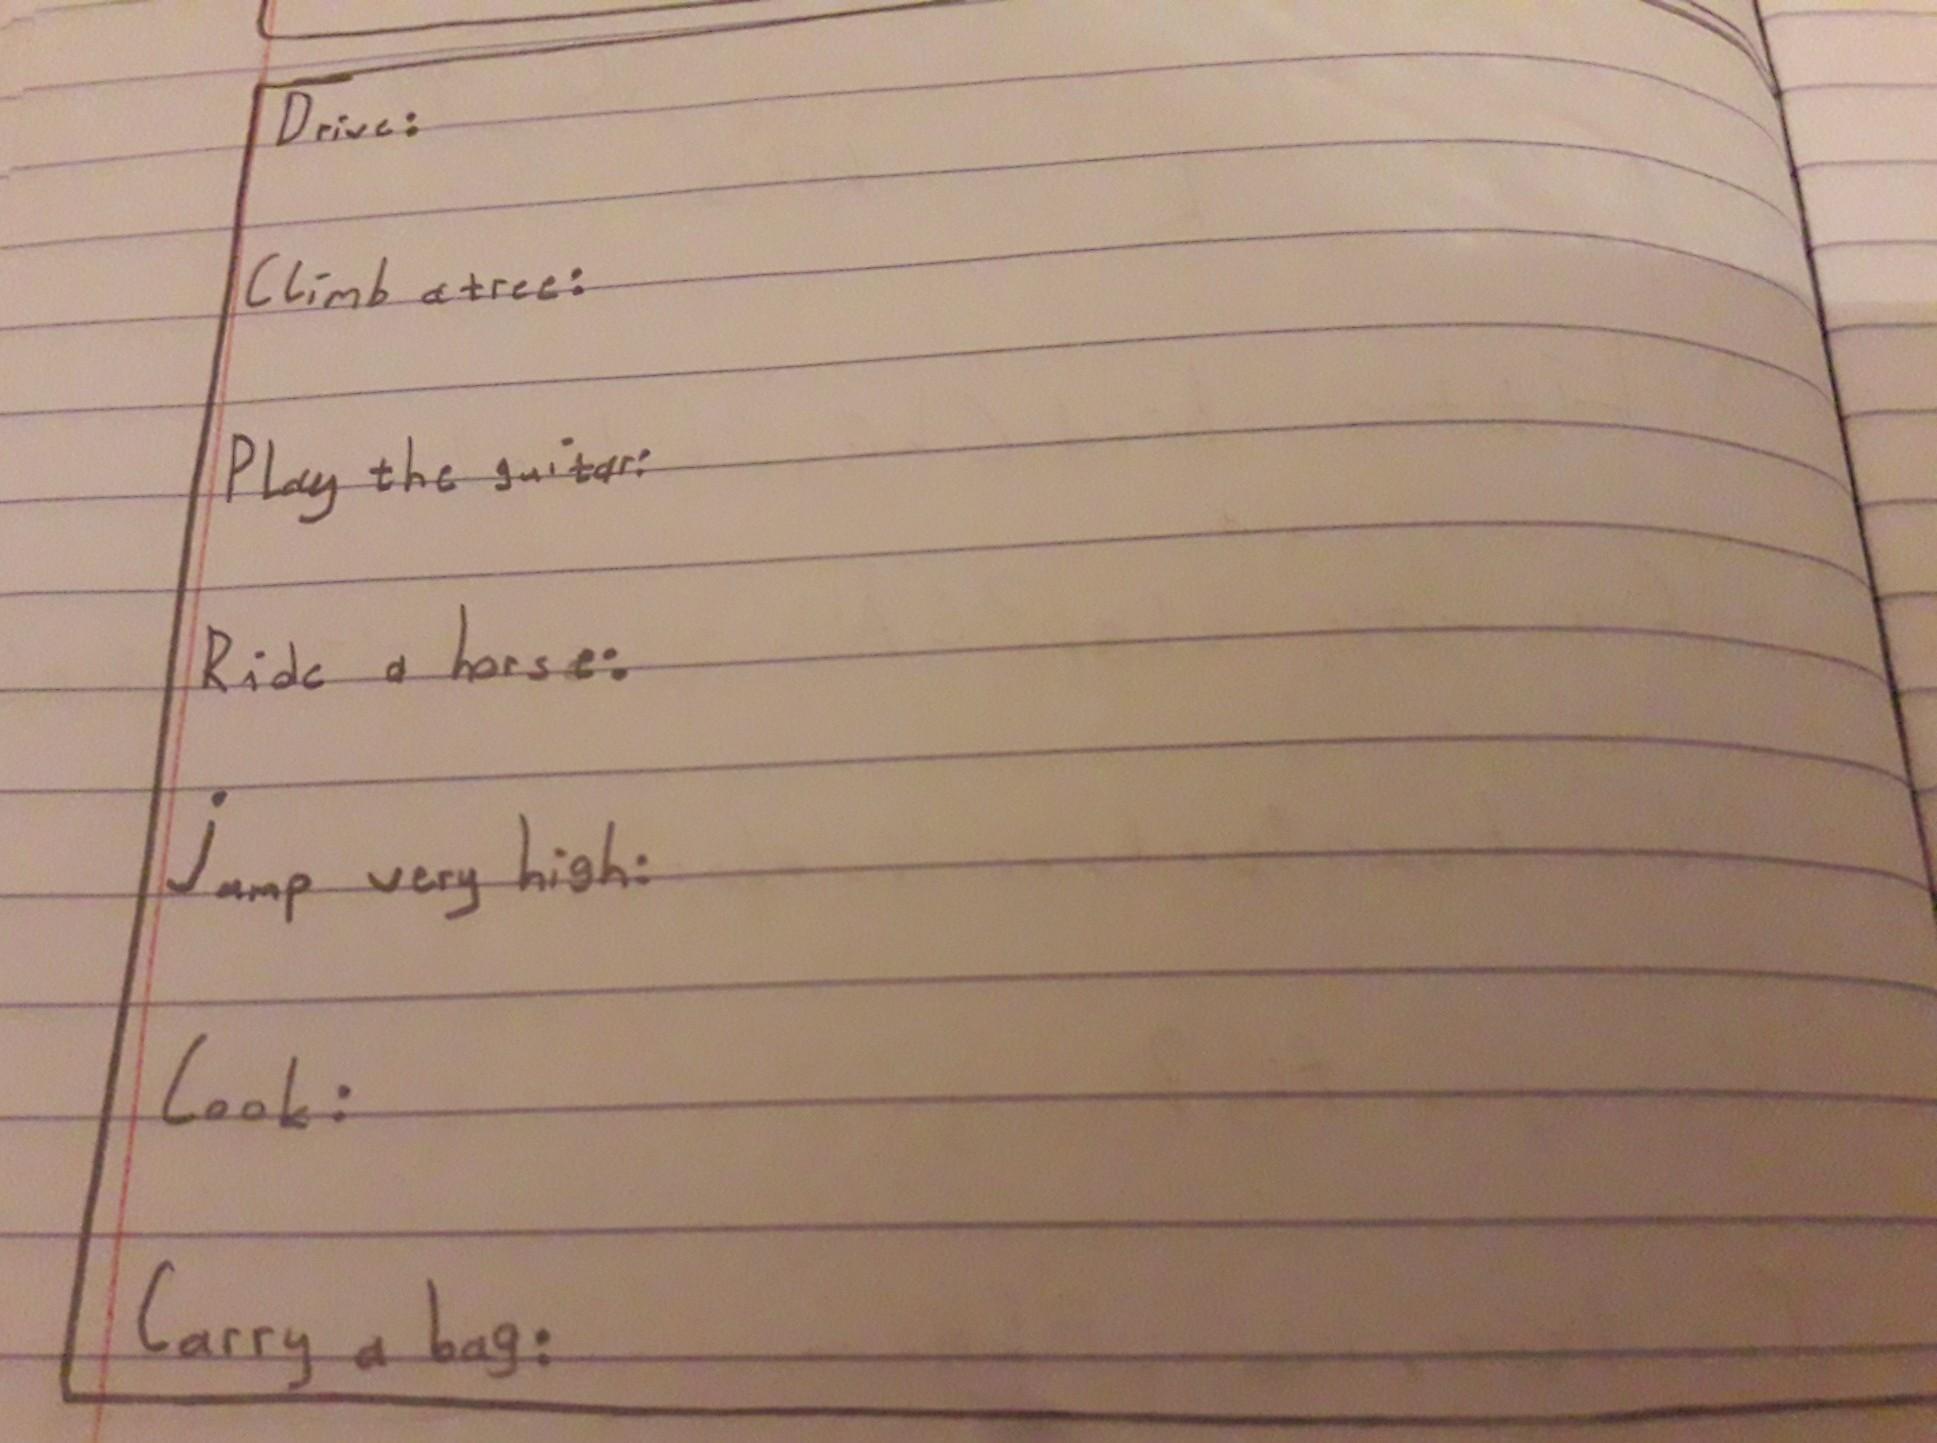 Drive:
Climb a tree:
Play the guitar:
Ride a horse:
jump very high:
Cook:
Carry a bag: